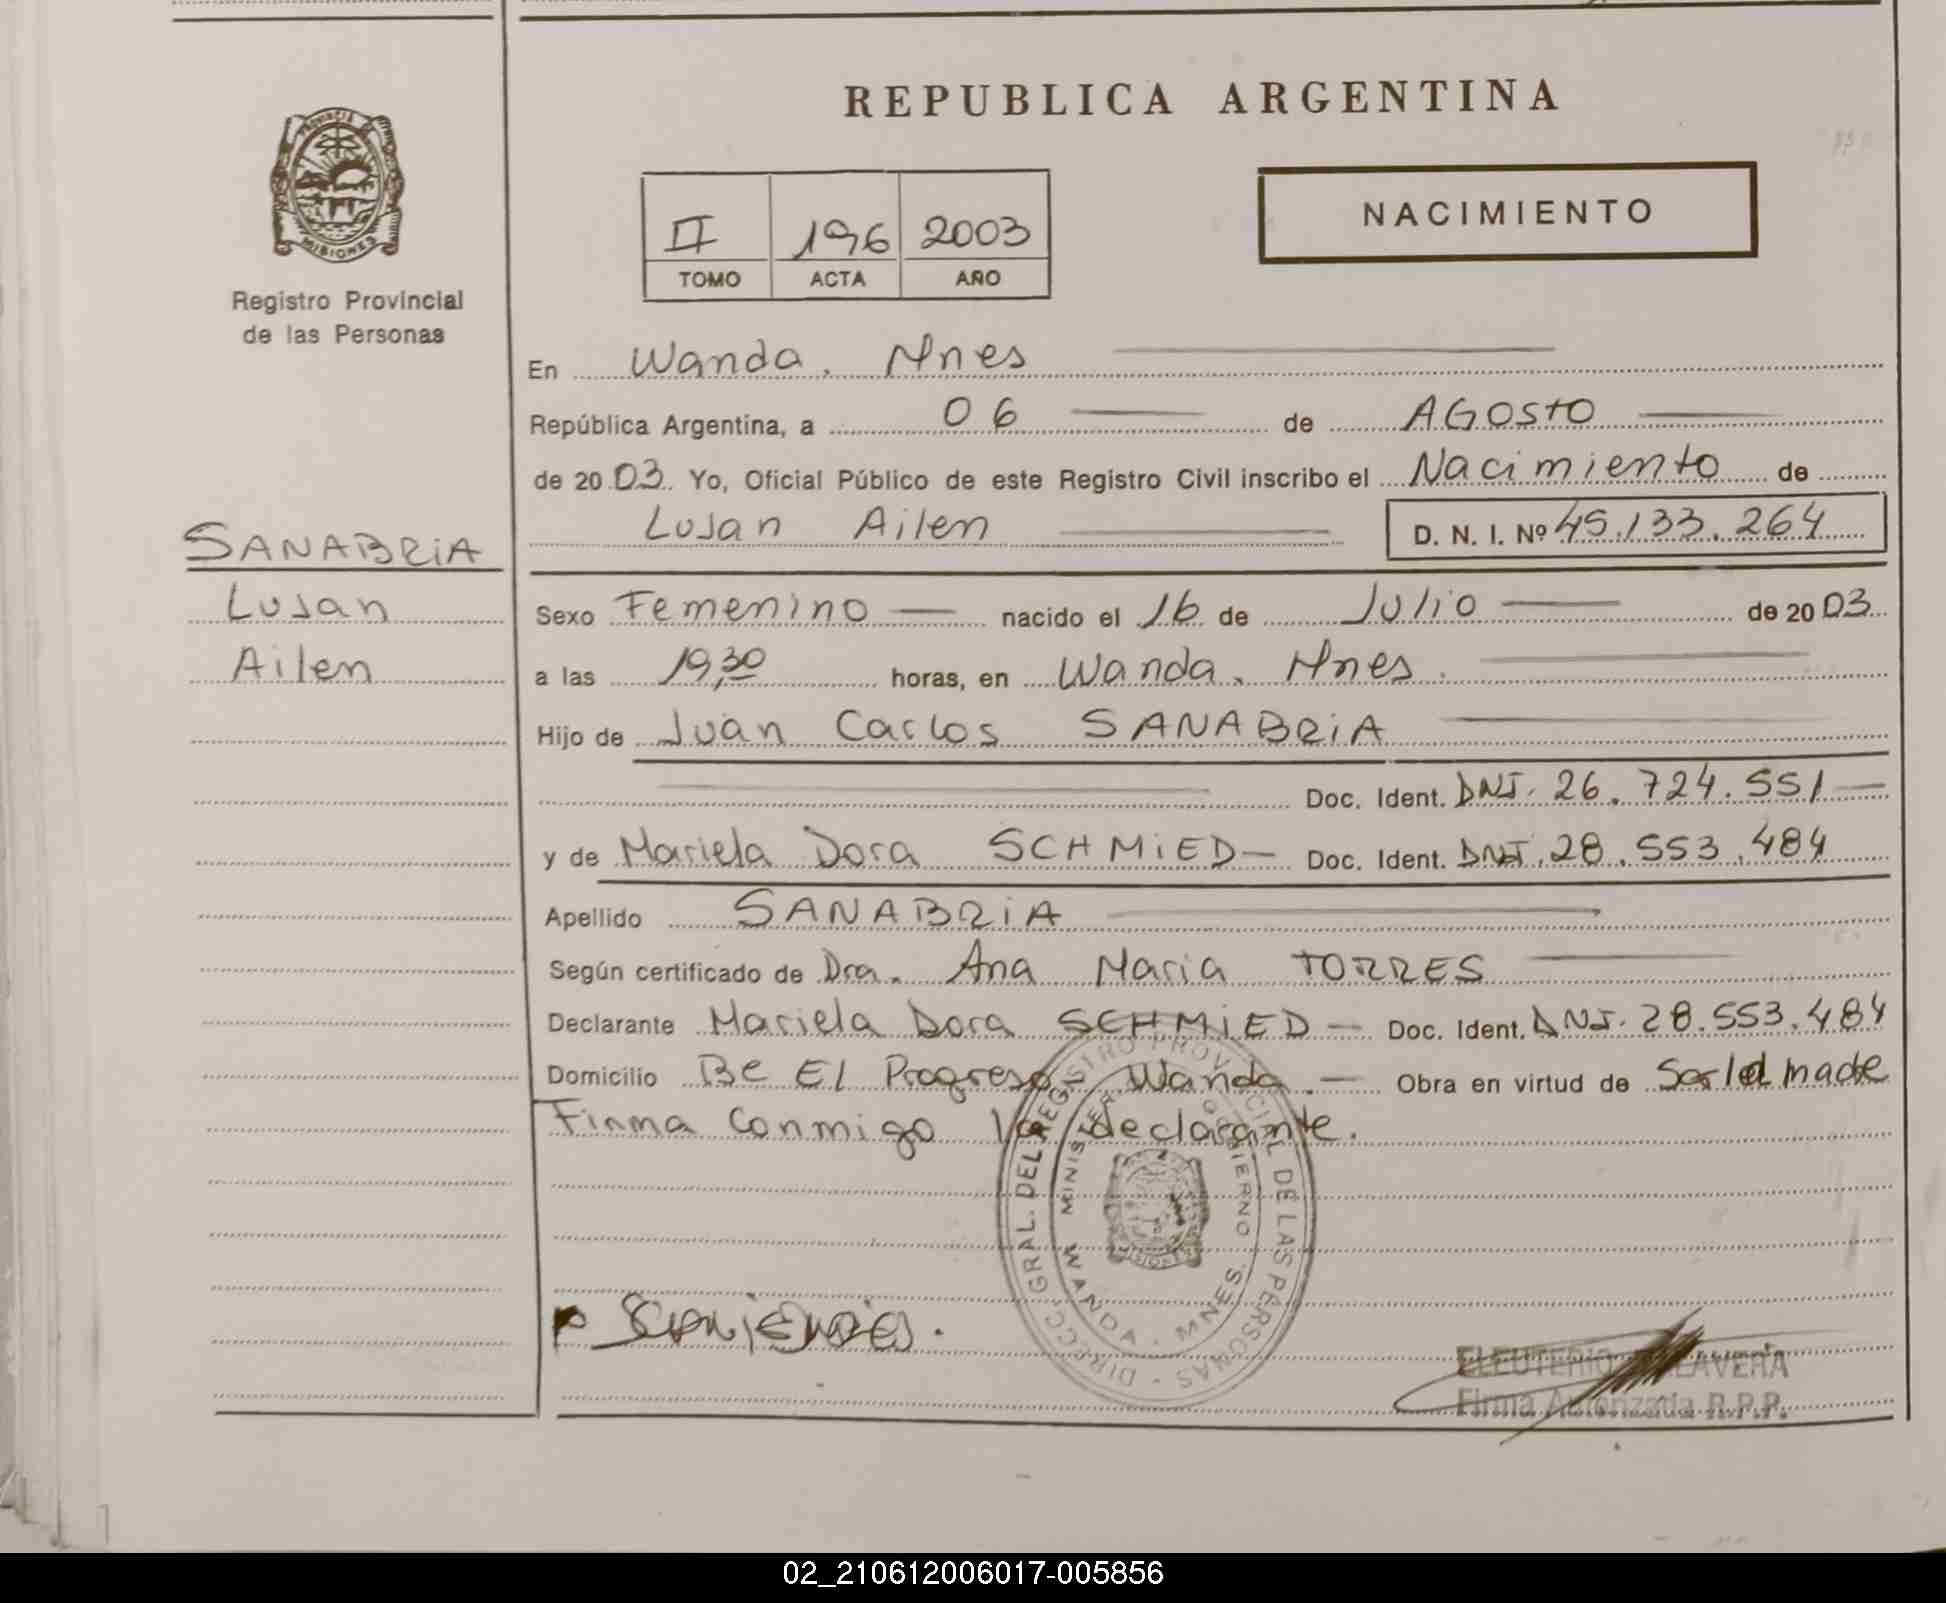 REPUBLICA ARGENTINA
PROVINCIA DE MISIONES
Registro Provincial
de las Personas
II 196 2003
TOMO ACTA AÑO
NACIMIENTO
En Wanda. Mnes
República Argentina, a 06 de AGOSTO
de 2003. Yo, Oficial Público de este Registro Civil inscribo el Nacimiento de
Lujan Ailen D. N. I. Nº 45.133.264
SANABRIA
Lujan
Ailen
Sexo Femenino nacido el 16 de Julio de 2003
a las 19,30 horas, en Wanda. Mnes.
Hijo de Juan Carlos SANABRIA
Doc. Ident. DNI. 26.724.551
y de Mariela Dora SCHMIED Doc. Ident. DNI. 28.553.484
Apellido SANABRIA
Según certificado de Dra. Ana Maria TORRES
Declarante Mariela Dora SCHMIED Doc. Ident. DNI. 28.553.484
Domicilio Be El Progreso - Wanda. Obra en virtud de Ser la madre
Firma conmigo la declarante.
DIRECC. GRAL. DEL REGISTRO PROVINCIAL DE LAS PERSONAS
MINISTER. GOBIERNO
WANDA - MNES.
ELEUTERIO TALAVERA
Firma Autorizada R.P.P.
02_210612006017-005856